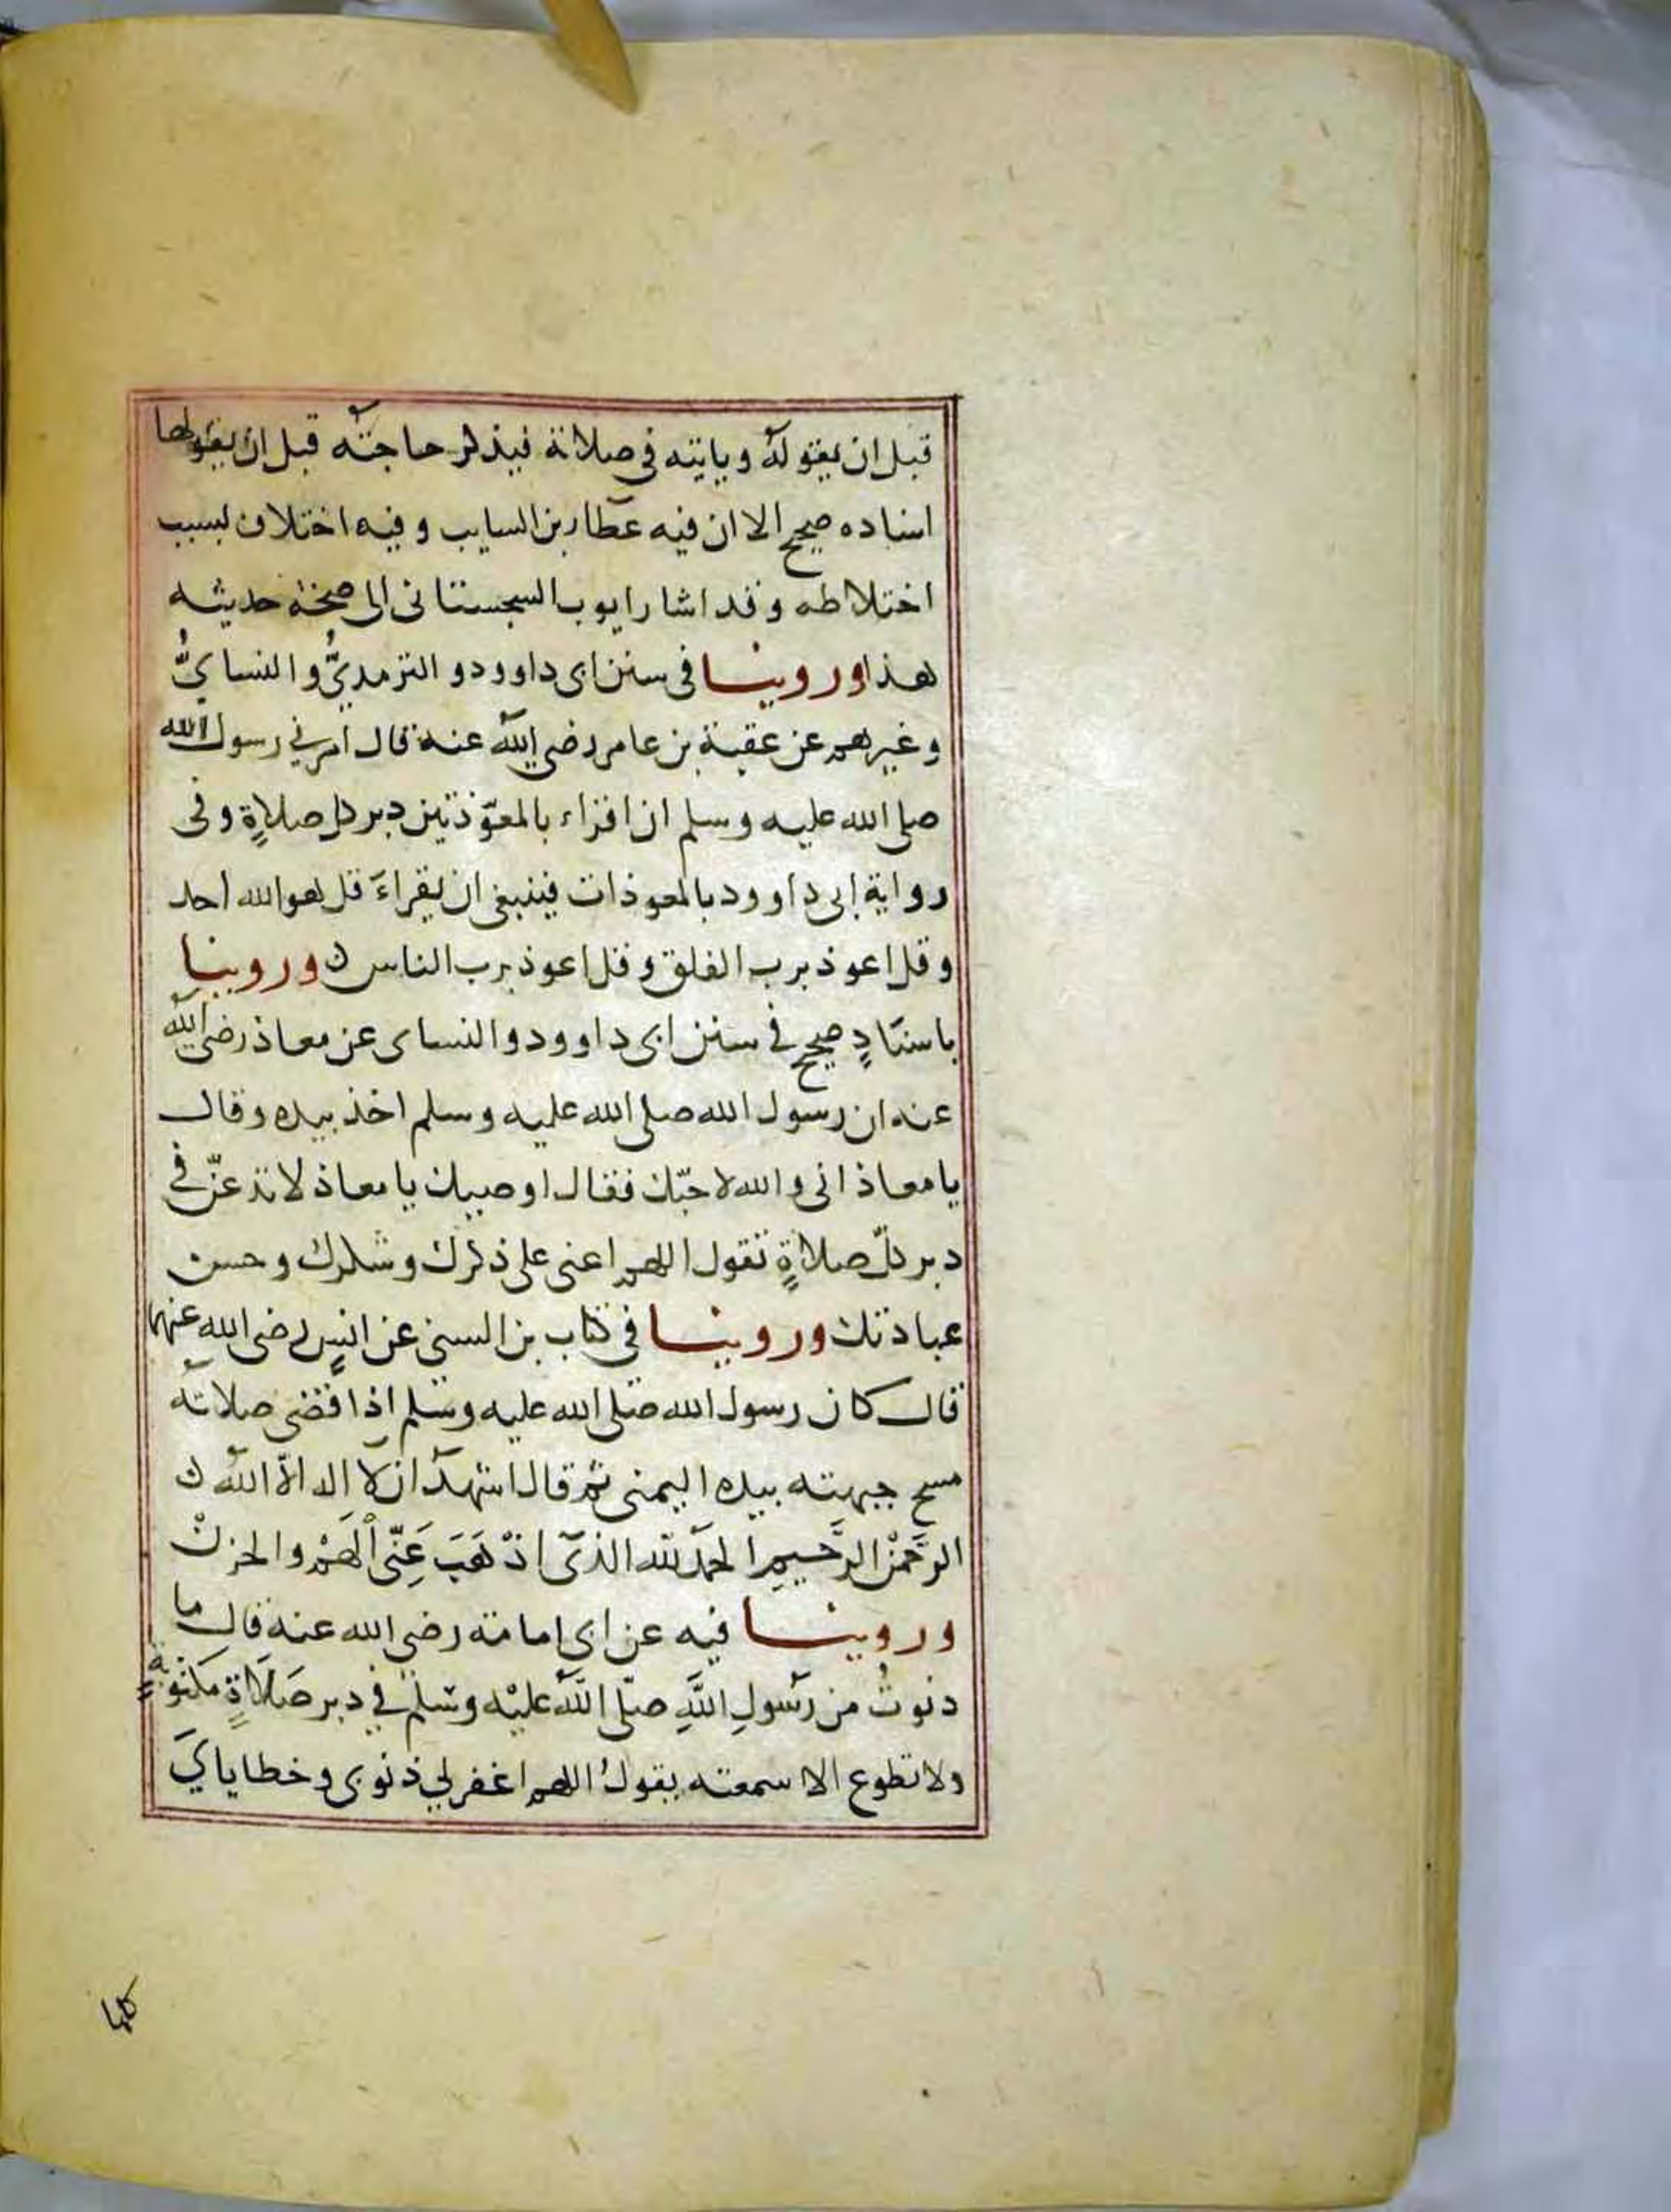 قبل ان يقوله ويايته في صلاته فيذكر حاجته قبل ان يقولها
اسناده صحيح الا ان فيه عطا بن السايب وفيه اختلاف بسبب
اختلاطه وقد اشار ايوب السجستانى الى صحة حديثه
هذا وروينا فى سنن ابى داوود والترمديُّ والنسايُّ
وغيرهم عن عقبة بن عامر رضي الله عنه قال امرني رسول الله
صلى الله عليه وسلم ان اقراء بالمعوّذتين دبر كل صلاةٍ وفى
رواية ابى داوود بالمعوذات فينبغى ان يقراءَ قل هو الله احد
وقل اعوذ برب الفلق وقل اعوذ برب الناس ن وروينا
باسنادٍ صحيح في سنن ابى داوود والنساى عن معاذ رضي الله
عنه ان رسول الله صلى الله عليه وسلم اخذ بيده وقال
يا معاذ انى والله لاحبّك فقال اوصيك يا معاذ لا تدعنّ في
دبر كلّ صلاةٍ تقول اللهم اعنى على ذكرك وشكرك وحسن
عبادتك وروينا في كتاب بن السني عن انسٍ رضى الله عنهما
قال كان رسول الله صلى الله عليه وسلم اذا قضى صلاته
مسح جبهته بيده اليمنى ثم قال اشهد ان لا اله الاّ الله ن
الرَّحمنْ الرَّحيمِ الحمد لله الذى اذْهَبَ عَنّى اَلهمْ والحزنْ
وروينا فيه عن ابى امامة رضي الله عنه قال ما
دنوتُ من رسولِ اللهِ صلّى الله عليْه وسلم في دبر صَلاةٍ مكتوبةٍ
ولا تطوع الا سمعته يقولُ اللهم اغفر لي ذنوبى وخطاياىَ
كلها